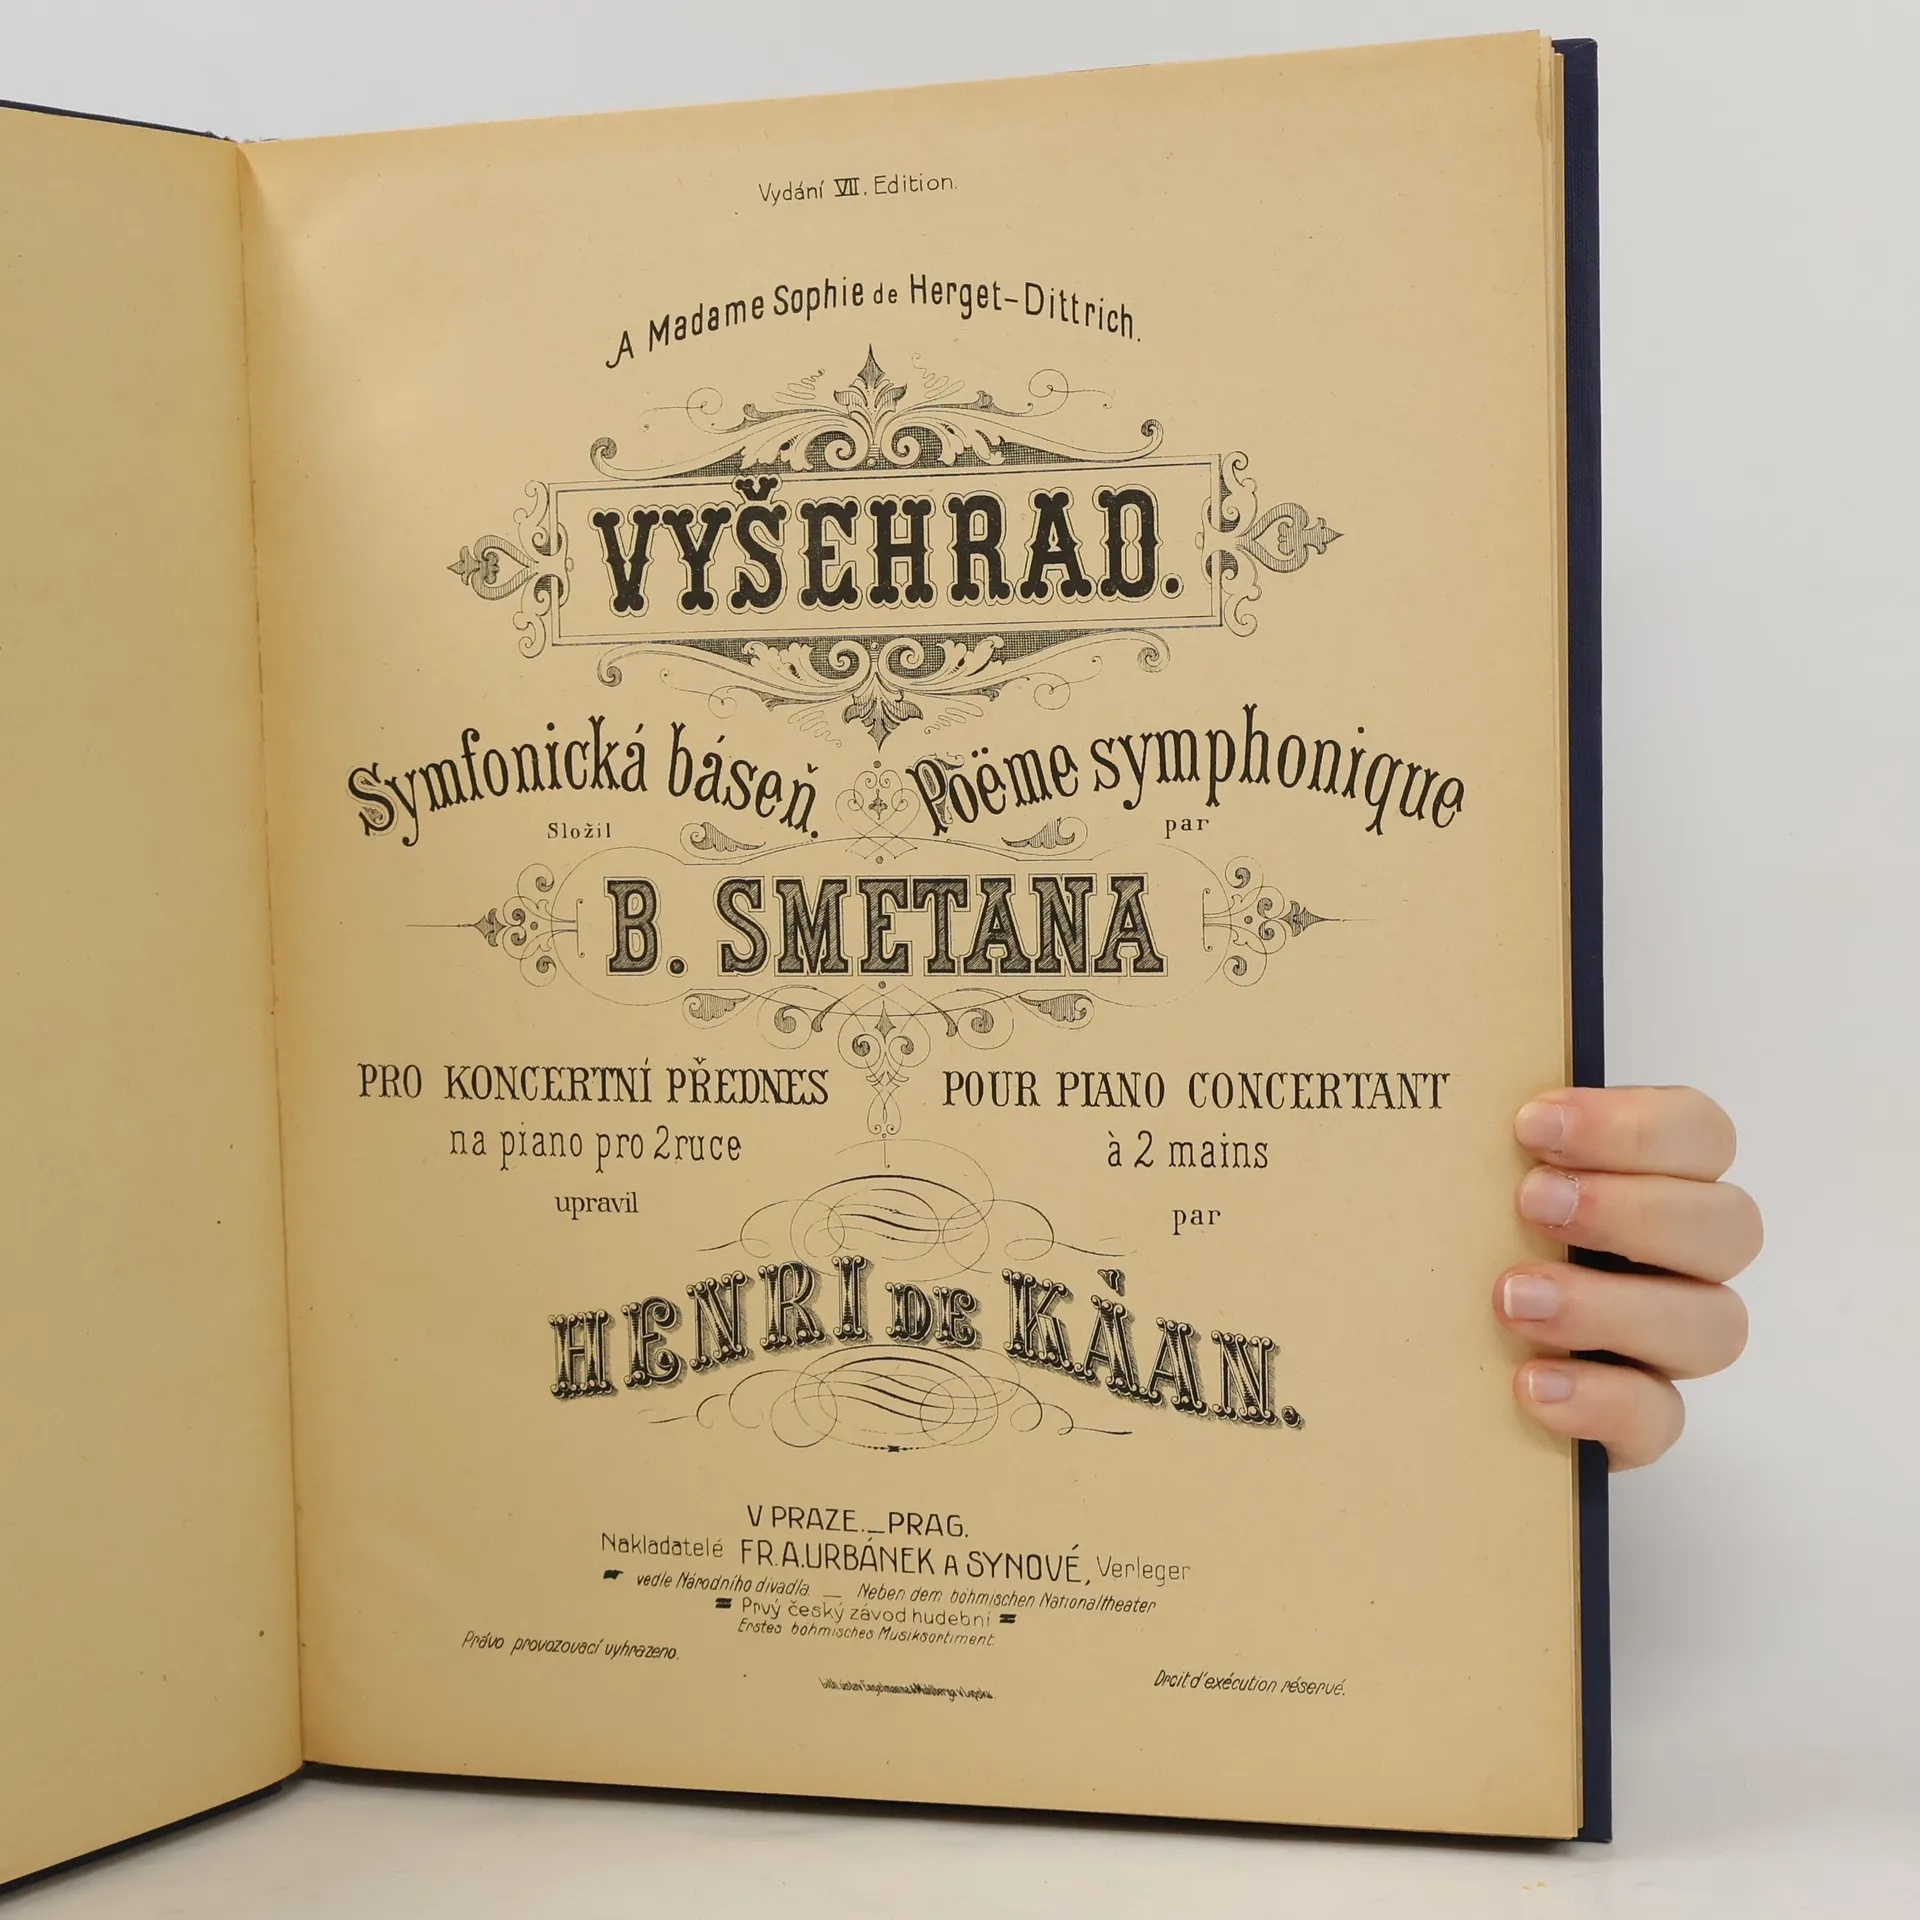 Vydání VII. Edition.
A Madame Sophie de Herget-Dittrich.
VYŠEHRAD.
Symfonická báseň. Poëme symphonique
Složil par
B. SMETANA
PRO KONCERTNÍ PŘEDNES POUR PIANO CONCERTANT
na piano pro 2 ruce à 2 mains
upravil par
HENRI DE KÀAN.
V PRAZE._PRAG.
Nakladatelé FR.A.URBÁNEK A SYNOVÉ, Verleger
vedle Národního divadla _ Neben dem böhmischen Nationaltheater
Prvý český závod hudební
Erstes böhmisches Musiksortiment.
Právo provozovací vyhrazeno. Droit d'exécution réservé.